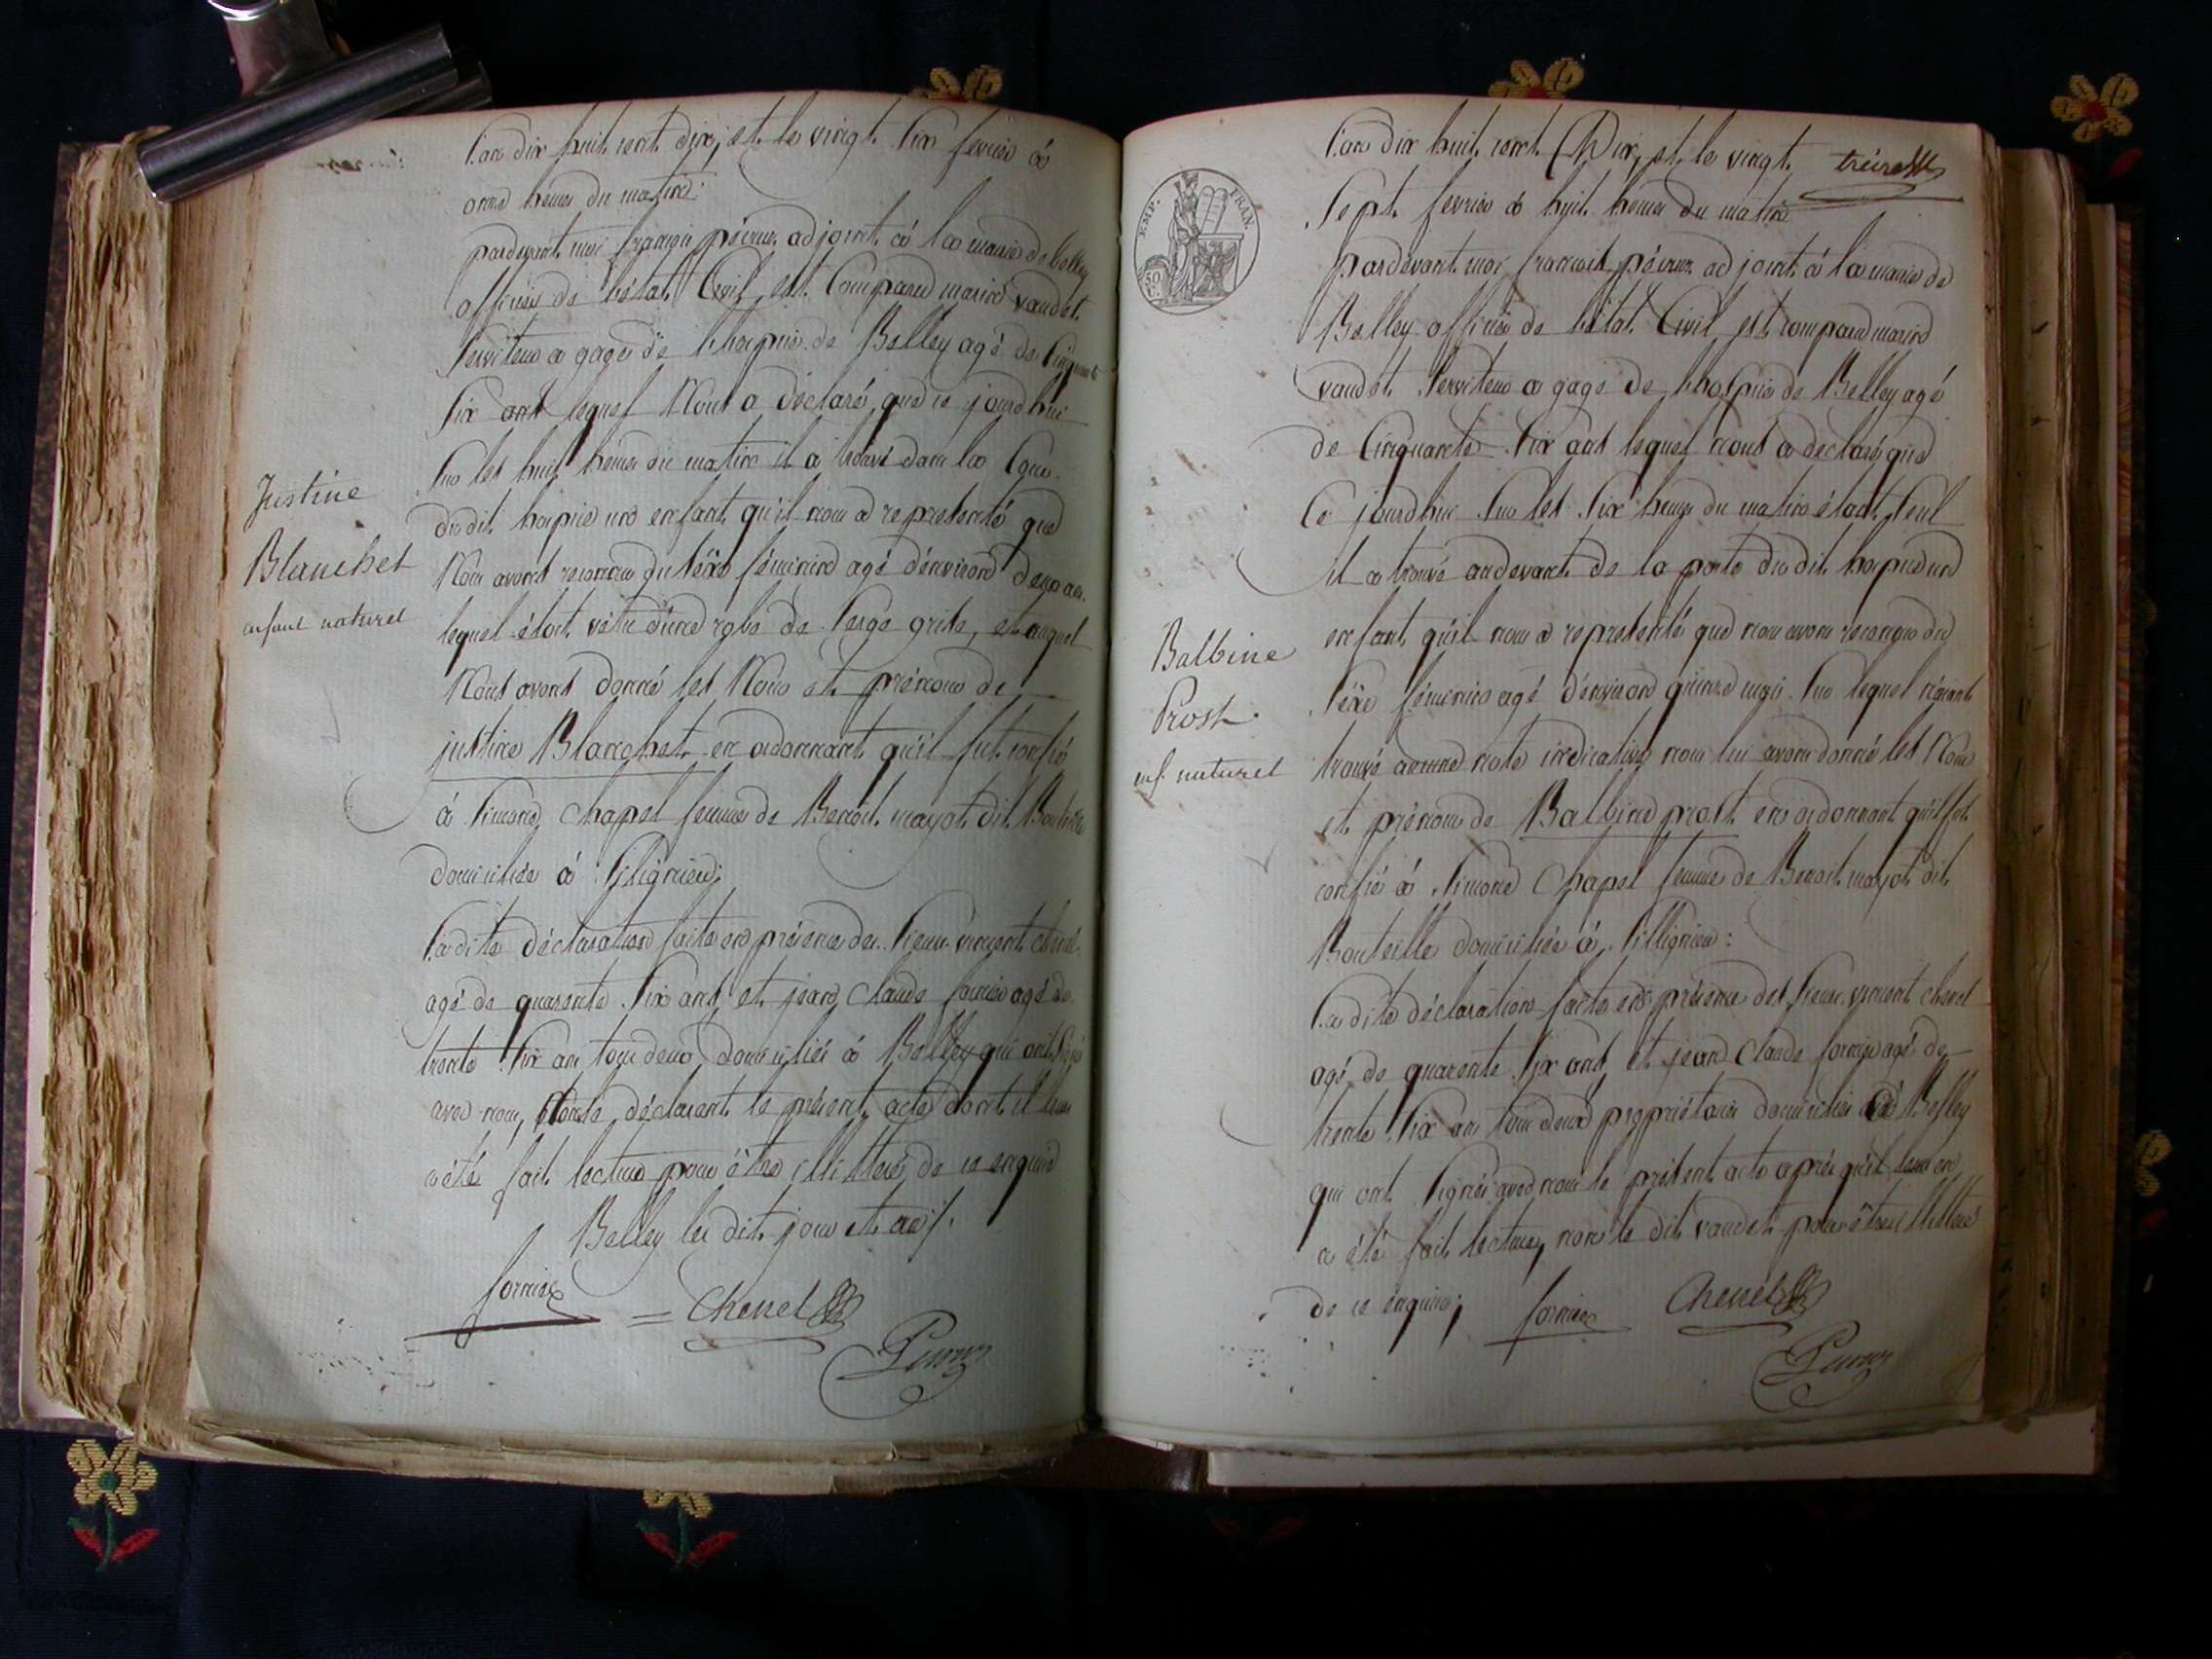 L'an dix huit cent dix, et le vingt six fevrier à
onze heures du matin:
pardevant moi françois péeur adjoint à la mairie de belley
officier de l'état Civil est Comparu marin vaudet
serviteur a gage de l'hospice de Belley agé de Cinquante
six ans lequel Nous a déclaré que ce jourdhui
sur les huit heures du matin il a trouvé dans la Cour
du dit hospice un enfant qu'il nous a représenté que
Nous avons reconnu du séxe féminin agé d'environ deux ans
lequel étoit vétu d'une robe de serge grise, et auquel
Nous avons donné les Nom et prénom de
justine Blanchet en ordonnant qu'il fut confié
à simone Chapel femme de Benoit mayot dit Bouteille
domiciliée à silignieu;
La dite déclaration faite en présence des sieurs vincent chenel
agé de quarente six ans, et jean Claude fornier agé de
trente six ans tous deux domiciliés à Belley qui ont signé
avec nous, non le déclarant le présent acte dont il leur
a été fait lecture pour être illitteré de ce enquis
Belley les dits jour et an /.
fornier
Chenel
Justine
Blanchet
enfant naturel
treize
EMP. FRAN.
50
C.
L'an dix huit cent Dix, et le vingt
sept fevrier à huit heures du matin
pardevant moi françois péeur adjoint à la mairie de
Belley officier de l'état Civil est comparu marin
vaudet serviteur a gage de l'hospice de Belley agé
de Cinquante six ans lequel nous a declaré que
Ce jourdhui sur les six heures du matin étant seul
il a trouvé audevant de la porte du dit hospice un
enfant qu'il nous a représenté que nous avons reconnu du
séxe féminin agé d'environ quinze mois sur lequel n'ayant
trouvé aucune note indicative nous lui avons donné les Nom
et prénom de Balbine prost en ordonnant qu'il fut
confié à simone Chapel femme de Benoit mayot dit
Bouteille domiciliée à sillignieu:
La dite déclaration faite en présence des sieurs vincent chenel
agé de quarente six ans et jean Claude fornier agé de
trente six ans tous deux propriétaires domiciliés à Belley
qui ont signés avec nous le présent acte après qu'il leur en
a été fait lecture, non le dit vaudet pour être illitteré
de ce enquis;
fornier
Chenel
Balbine
Prost.
enf. naturel